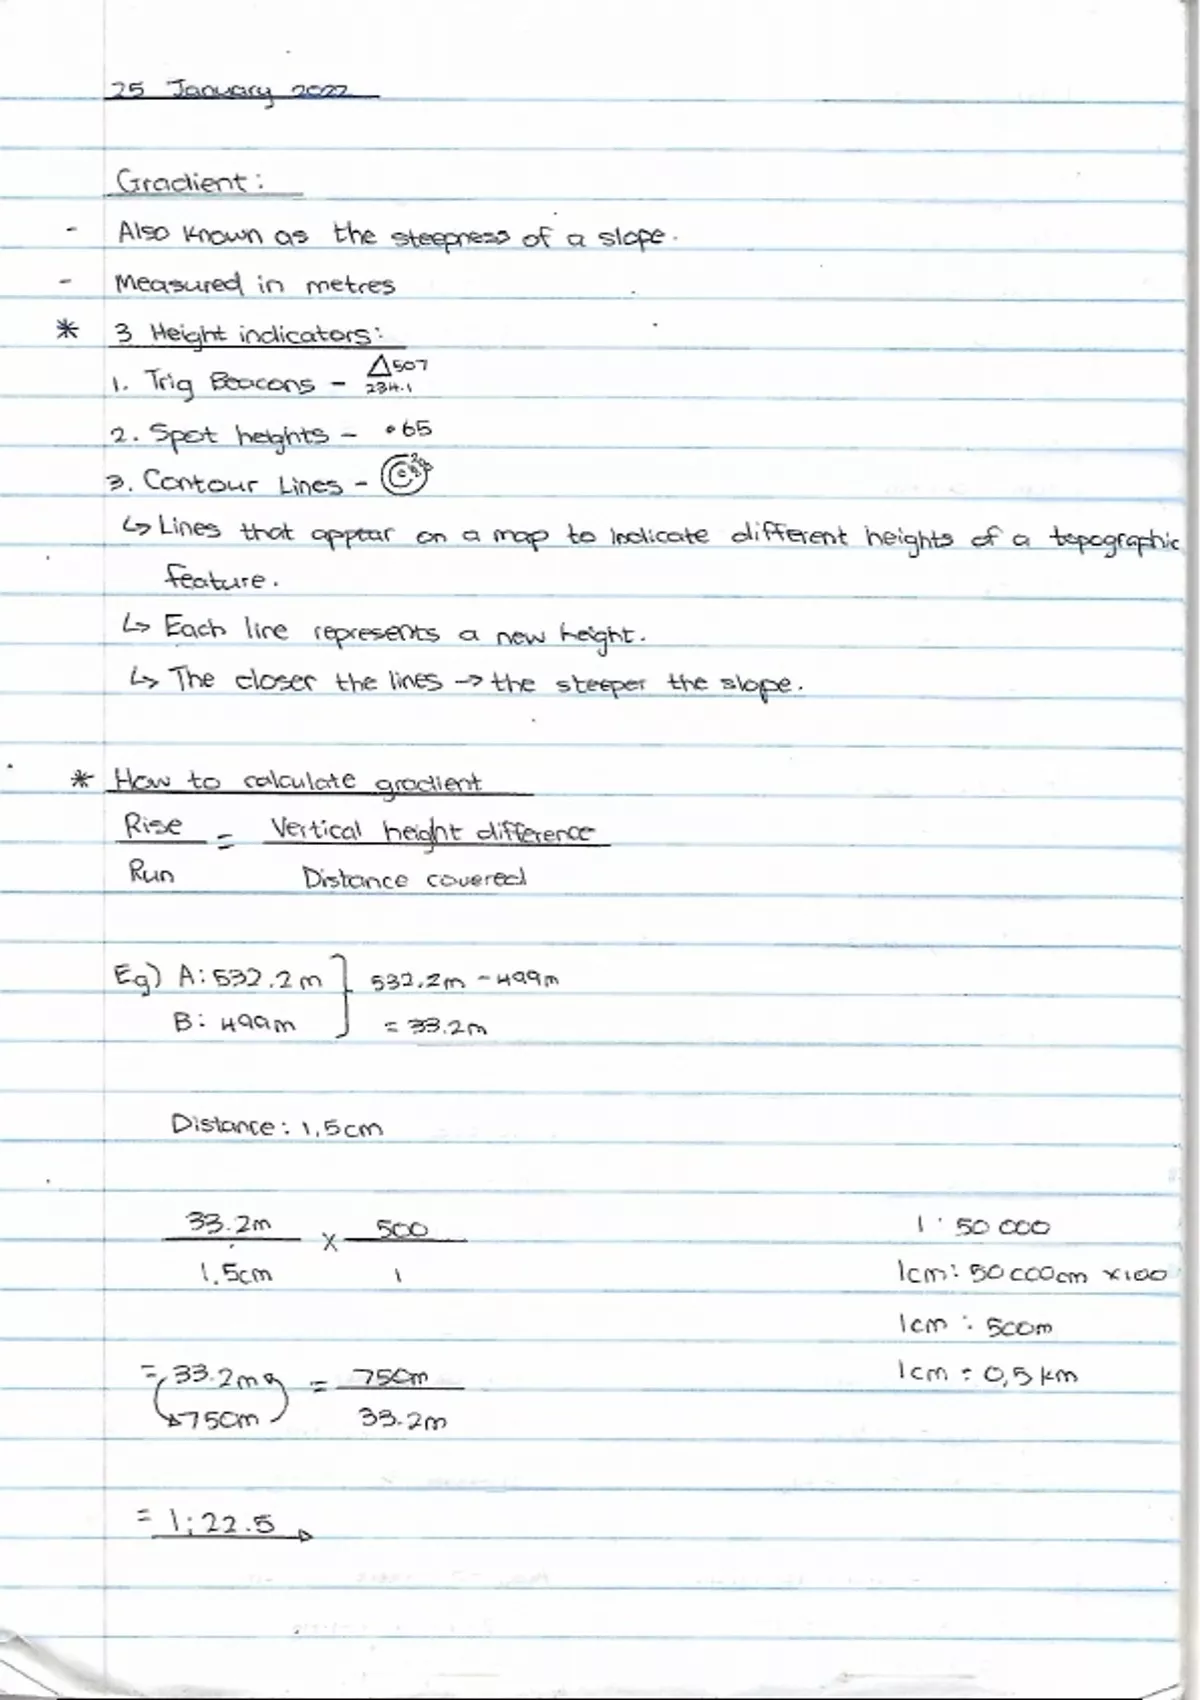 25 January 2022
Gradient:
- Also known as the steepness of a slope.
- Measured in metres
* 3 Height indicators:
1. Trig Beacons - △507
234.1
2. Spot heights - •65
3. Contour Lines -
↳ Lines that appear on a map to indicate different heights of a topographic
feature.
↳ Each line represents a new height.
↳ The closer the lines → the steeper the slope.
* How to calculate gradient
Rise = Vertical height difference
Run Distance covered
Eg) A: 532.2m } 532.2m - 499m
B: 499m = 33.2m
Distance: 1,5cm
33.2m x 500 1 : 50 000
1.5cm 1 1cm: 50 000cm x100
1cm : 500m
= 33.2m = 750m 1cm = 0,5km
750m 33.2m
= 1:22.5